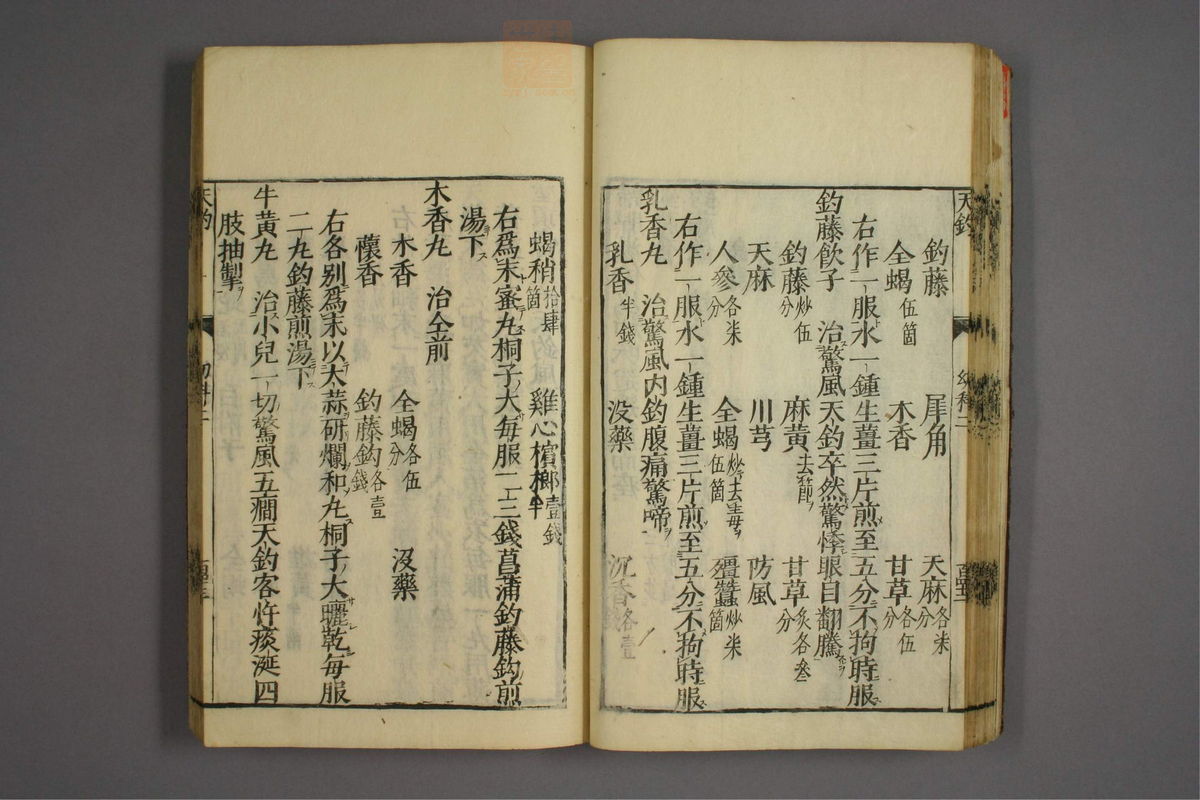 天釣 幼科二
釣藤 犀角 天麻各柒分
全蝎伍箇 木香 甘草各伍分
右作一服水一鍾生薑三片煎至五分不拘時服
釣藤飲子 治驚風天釣卒然驚悸眼目翻騰
釣藤炒伍分 麻黃去節 甘草炙各叁分
天麻 川芎 防風
人參各柒分 全蝎炒去毒伍箇 殭蠶炒柒箇
右作一服水一鍾生薑三片煎至五分不拘時服
乳香丸 治驚風内釣腹痛驚啼
乳香半錢 没藥 沉香各壹錢
蝎稍拾肆箇 雞心檳榔壹錢半
右爲末蜜丸桐子大每服一二三錢菖蒲釣藤鈎煎
湯下
木香丸 治仝前
木香 全蝎各伍分 没藥
懷香 釣藤鈎各壹錢
右各别爲末以大蒜研爛和丸桐子大曬乾每服
二丸釣藤煎湯下
牛黃丸 治小兒一切驚風五癇天釣客忤痰涎四
肢抽掣